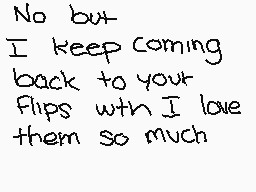 No but
I keep coming
back to your
flips wth I love
them so much